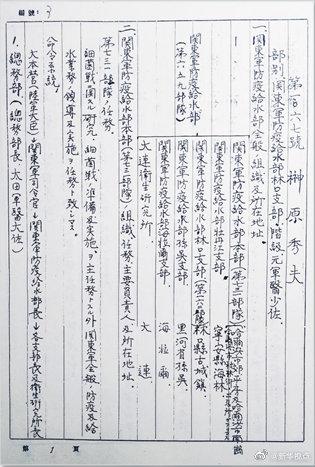 編號：3
第百六七號　榊原秀夫
部別、關東軍防疫給水部林口支部　階級、元軍醫少佐
一、關東軍防疫給水部全般ノ組織及所在地址。
關東軍防疫給水部
（第六五九部隊）
關東軍防疫給水部牡丹江支部
寧安縣海林
關東軍防疫給水部林口支部
林口縣古城鎮
關東軍防疫給水部孫吳支部
黑河省孫吳
關東軍防疫給水部海拉爾支部
海拉爾
大連衛生研究所
大連
二、關東軍防疫給水部本部（第七三一部隊）ノ組織、任務、主要員責人及所在地址。
第七三一部隊ノ任務。
細菌戰ニ關スル研究、細菌戰ノ準備及實施ヲ主任務トスル外關東軍全般ノ防疫及給
水業務ノ領導及實施ヲ任務ト致シマス。
命令系統
大本營（陸軍大臣）→關東軍司令官→關東軍防疫給水部長→各支部長及衛生研究所長
1. 總務部（總務部長　太田軍醫大佐）
第1頁
@新华视点